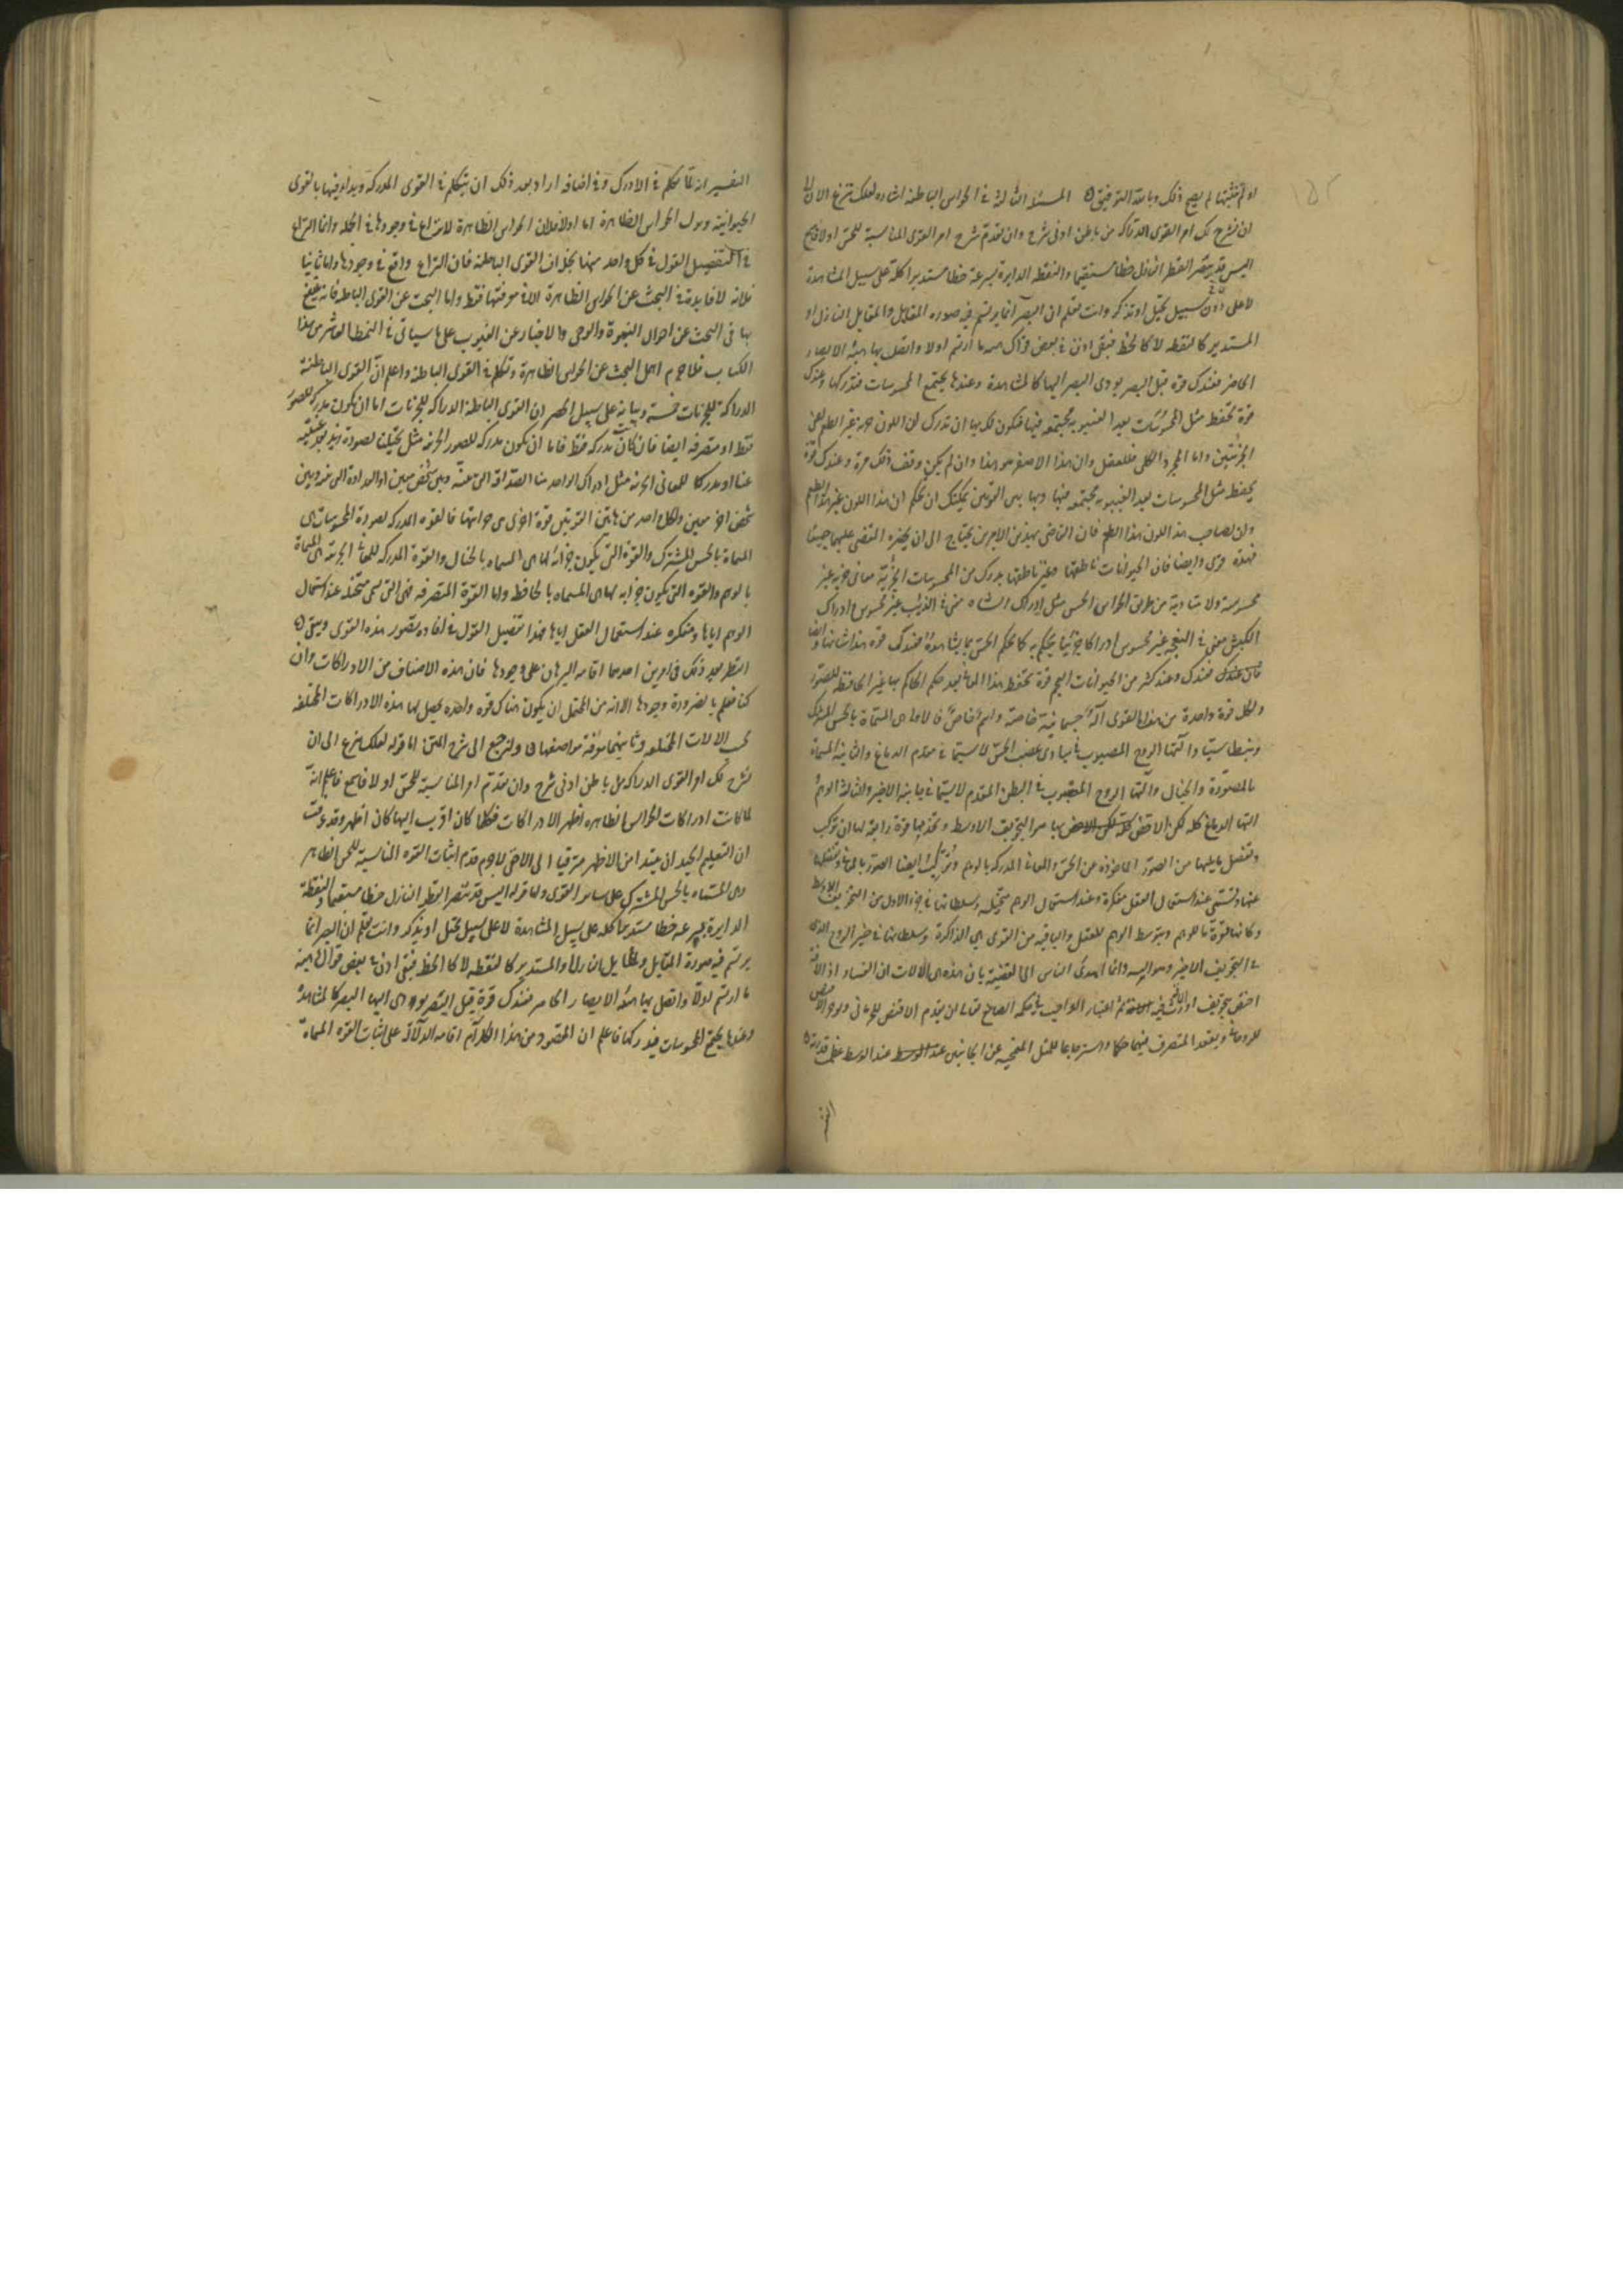 او لم نثبتها لم يصح ذلك وبالله التوفيق المسئلة الثالثة في الحواس الباطنة اشارة لعلك تنزع الان الى
ان نشرح لك امر القوى الدراكة من باطن ادنى شرح وان نقدم شرح امر القوى المناسبة للحس اولا فاسمع
اليس قد تبصر القطر النازل خطا مستقيما والنقطة الدايرة بسرعة خطا مستديرا كله على سبيل المشاهدة
لا على سبيل تخيل او تذكر وانت تعلم ان البصر انما يرتسم فيه صورة المقابل والمقابل النازل او
المستدير كالنقطة لا كالخط فبقى اذن في بعض قواك هيئة ما ارتسم اولا واتصل بها هيئة الابصار
الحاضر فعندك قوة قبل البصر يودى البصر اليها كالمشاهدة وعندها يجتمع المحسوسات فتدركها وعندك
قوة تحفظ مثل المحسوسات بعد الغيبوبة مجتمعة فيها فتكون لك بها ان تدرك ان اللون غير الطعم
الجزئيين واما المجرد الكلى فللعقل وان هذا الاصفر هو هذا وان لم يكن وقف ذلك مرة وعندك قوة
تحفظ مثل المحسوسات بعد الغيبوبة مجتمعة فيها وبها بين القوتين يمكنك ان تحكم ان هذا اللون غير هذا الطعم
وان لصاحب هذا اللون هذا الطعم فان القاضى بهذين الامرين يحتاج الى ان يحضره المقضى عليهما جميعا
فهذه قوى وايضا فان الحيوانات ناطقها وغير ناطقها يدرك من المحسوسات الجزئية معانى جزئية غير
محسوسة ولا متادية من طرق الحواس الحس مثل ادراك الشاة معنى في الذئب غير محسوس وادراك
الكبش معنى في النعجة غير محسوس ادراكا جزئيا يحكم به كما يحكم الحس بما يشاهده فعندك قوة هذا شانها وايضا
فعندك وعند كثير من الحيوانات العجم قوة تحفظ هذا المعانى بعد حكم الحاكم بها غير الحافظة للصور
ولكل قوة واحدة من هذه القوى آلة جسمانية خاصة واسم خاص فالاولى هى المسماة بالحس المشترك
وبنطاسيا وآلتها الروح المصبوب في مبادى عصب الحس لا سيما في مقدم الدماغ والثانية المسماة
بالمصورة والخيال وآلتها الروح المصبوب في البطن المقدم لا سيما في جانبه الاخير والثالثة الوهم
آلتها الدماغ كله لكن الاخص بها هو التجويف الاوسط وتخدمها قوة رابعة لها ان تركب
وتفصل ما يليها من الصور الماخوذة عن الحس والمعانى المدركة بالوهم وتركب ايضا الصور بالمعانى وتفصلها
عنها وتسمى عند استعمال العقل مفكرة وعند استعمال الوهم متخيلة وسلطانها في الجزء الاول من التجويف الاوسط
وكانها قوة ما للوهم وبتوسط الوهم للعقل والباقية من القوى هى الذاكرة وسلطانها في حيز الروح الذى
في التجويف الاخير وهو آلته وانما هدى الناس الى القضية بان هذه هى الآلات ان الفساد اذا
اختص بتجويف اورث الآفة فيه ثم اعتبار الواجب في حكمة الصانع تعالى ان يقدم الاقنص للجرمانى ويوخر الاقنص
للروحانى ويقعد المتصرف فيهما حكما واسترجاعا للمثل المنمحية عن الجانبين عند الوسط عظمت قدرته
التفسير انه لما تكلم في الادراك وفي اضافه اراد بعد ذلك ان يتكلم في القوى المدركة ويبداء فيها بالقوى
الحيوانية وترك الحواس الظاهرة اما اولا فلان الحواس الظاهرة لا نزاع في وجودها في الجملة وانما النزاع
في تفصيل القول في كل واحد منها بخلاف القوى الباطنة فان النزاع واقع في وجودها واما ثانيا
فلانه لا فايدة في البحث عن الحواس الظاهرة الا في معرفتها فقط واما البحث عن القوى الباطنة فانه ينتفع
بها في البحث عن احوال النبوة والوحى والاخبار عن الغيوب على ما سياتى في النمط العاشر من هذا
الكتاب فلا جرم اهمل البحث عن الحواس الظاهرة وتكلم في القوى الباطنة واعلم ان القوى الباطنة
الدراكة للجزئيات خمسة وبيانه على سبيل الحصر ان القوى الباطنة الدراكة للجزئيات اما ان تكون مدركة للصور
فقط او متصرفة ايضا فان كانت مدركة فقط فاما ان تكون مدركة للصور الجزئية مثل تخيلنا لصورة زيد بعد غيبته
عنا او مدركا للمعانى الجزئية مثل ادراك الواحد منا الصداقة التى منه وبين شخص معين او العداوة التى منه وبين
شخص اخر معين ولكل واحد من هاتين القوتين قوة اخرى هى خزانتها فالقوة المدركة لصورة المحسوسات هى
المسماة بالحس المشترك والقوة التى يكون خزانة لها هى المسماة بالخيال والقوة المدركة للمعانى الجزئية هى المسماة
بالوهم والقوة التى يكون خزانة لها هى المسماة بالحافظة واما القوة المتصرفة فهى التى تسمى متخيلة عند استعمال
الوهم اياها ومفكرة عند استعمال العقل اياها فهذا تفصيل القول في افادة تصور هذه القوى وبقى
النظر بعد ذلك في امرين احدهما اقامة البرهان على وجودها فان هذه الاصناف من الادراكات وان
كنا نعلم بالضرورة وجودها الا انه من المحتمل ان يكون هناك قوة واحدة يحصل لها هذه الادراكات المختلفة
بحسب الالات المختلفة وثانيهما معرفة مواضعها ولنرجع الى شرح المتن اما قوله لعلك تنزع الى ان
نشرح لك امر القوى الدراكة من باطن ادنى شرح وان نقدم امر المناسبة للحس اولا فاسمع فاعلم انه
لما كانت ادراكات الحواس الظاهرة اظهر الادراكات فكلما كان اقرب اليها كان اظهر وقد عرفت
ان التعليم الجيد ان يبتدا من الاظهر مترقيا الى الاخفى لا جرم قدم اثبات القوة المناسبة للحس الظاهر
وهى المسماة بالحس المشترك على ساير القوى واما قوله اليس قد تبصر القطر النازل خطا مستقيما والنقطة
الدايرة بسرعة خطا مستديرا كله على سبيل المشاهدة لا على سبيل تخيل او تذكر وانت تعلم ان البصر انما
يرتسم فيه صورة المقابل والمقابل النازل او المستدير كالنقطة لا كالخط فبقى اذن في بعض قواك هيئة
ما ارتسم اولا واتصل بها هيئة الابصار الحاضر فعندك قوة قبل البصر يودى اليها البصر كالمشاهدة
وعندها يجتمع المحسوسات فيدركها فاعلم ان المقصود من هذا الكلام اقامة الدلالة على اثبات القوة المسماة